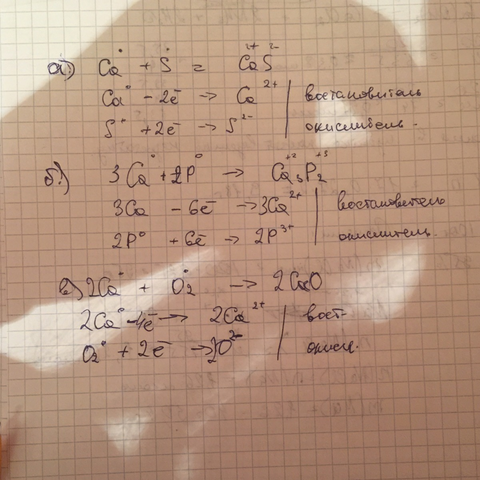 а) Ca⁰ + S⁰ = Ca²⁺S²⁻
Ca⁰ - 2ē → Ca²⁺ | востановитель
S⁰ + 2ē → S²⁻ | окислитель.
б) 3Ca⁰ + 2P⁰ → Ca₃⁺²P₂⁺³
3Ca - 6ē → 3Ca²⁺ | востановитель
2P⁰ + 6ē → 2P³⁺ | окислитель.
в) 2Ca⁰ + O₂⁰ → 2CaO
2Ca⁰ - 4ē → 2Ca²⁺ | вост-
O₂⁰ + 2ē → 2O²⁻ | окисл.